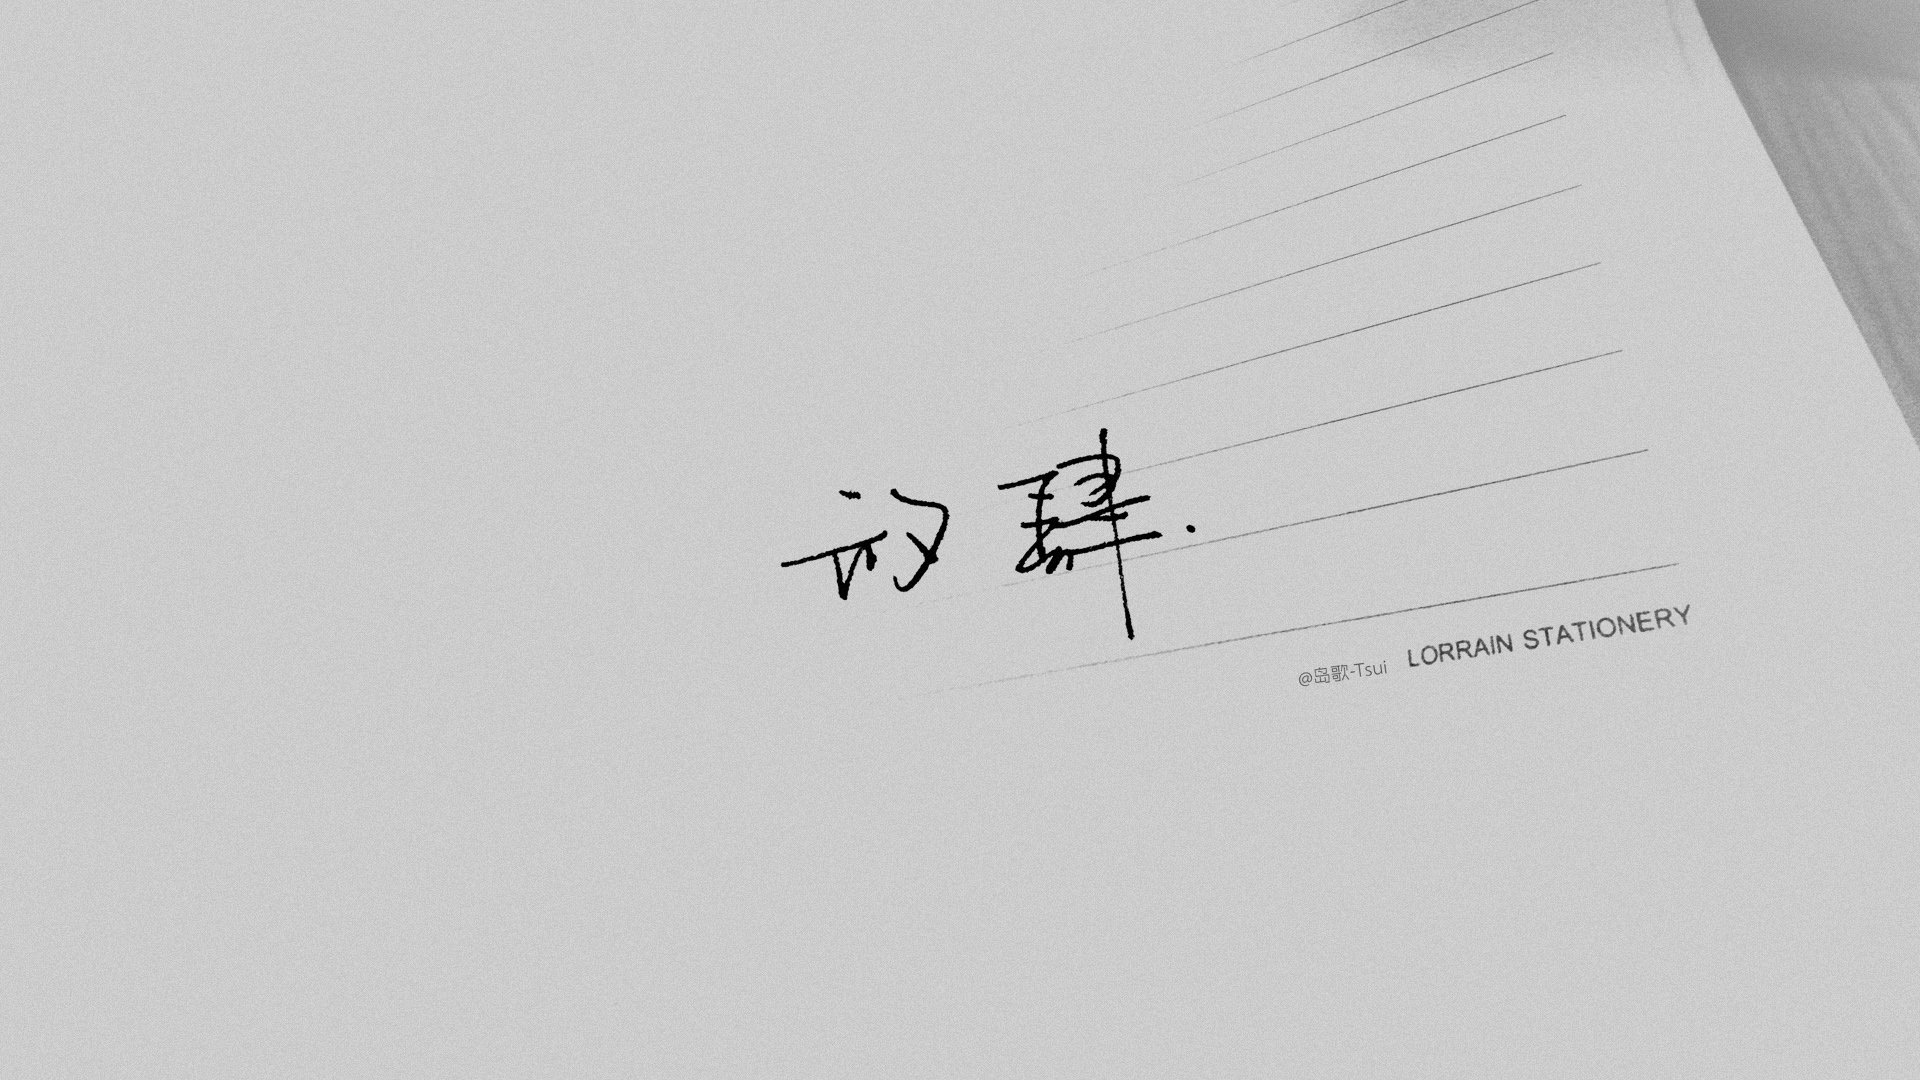 肆.
@岛歌-Tsui LORRAIN STATIONERY